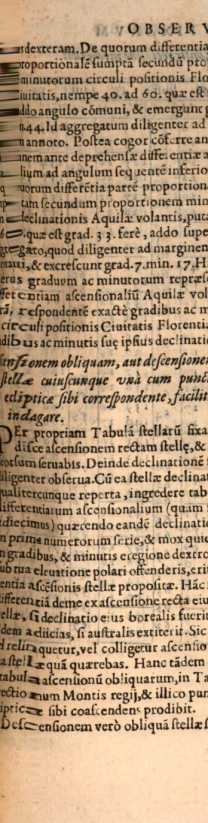 OBSERV
dexteram. De quorum differentia
roportionalē sumptā secundū pro
minutorum circuli positionis Flo
iuitatis, nempe 40. ad 60. quæ est
illo angulo cōmuni, & emergunt
44. Id aggregatum diligenter ad
annoto. Postea cogor cōferre an
nem ante deprehensæ differentiæ a
lium ad angulum sequentē inferio
uorum differētia partē proportion
tam secundum proportionem min
declinationis Aquilæ volantis, puta
quæ est grad. 33. ferè, addo supe
gato, quod diligenter ad marginem
taui, & excrescunt grad. 7. min. 17. H
erus graduum ac minutorum repræse
fferentiam ascensionaliū Aquilæ vol
respondentē exactè gradibus ac m
circuli positionis Ciuitatis Florentiæ
dibus ac minutis suę ipsius declinatio
ensionem obliquam, aut descensionem
stellæ cuiuscunque vnà cum punct
eclipticæ sibi correspondente, facilit
indagare.
PEr propriam Tabulā stellarū fixa
disce ascensionem rectam stellę, &
eorsum seruabis. Deinde declinationē
iligenter obserua. Cū ea stellæ declinat
qualitercunque reperta, ingredere tab
differentiarum ascensionalium (quam
diximus) quærendo eandē declinatio
n prima numerorum serie, & mox quie
n gradibus, & minutis è regione dextro
ub tua eleuatione polari offenderis, erit
entia ascēsionis stellæ propositæ. Hāc
ifferentiā deme ex ascensione recta eiu
ellæ, si declinatio eius borealis fuerit
dem adiicias, si australis extiterit. Sic
d relinquetur, vel colligetur ascensio
a stellæ quā quærebas. Hanc tādem
tabula ascensionū obliquarum, in Ta
rectionum Montis regij, & illico pun
ipticæ sibi coascendens prodibit.
Descensionem verò obliquā stellæ s